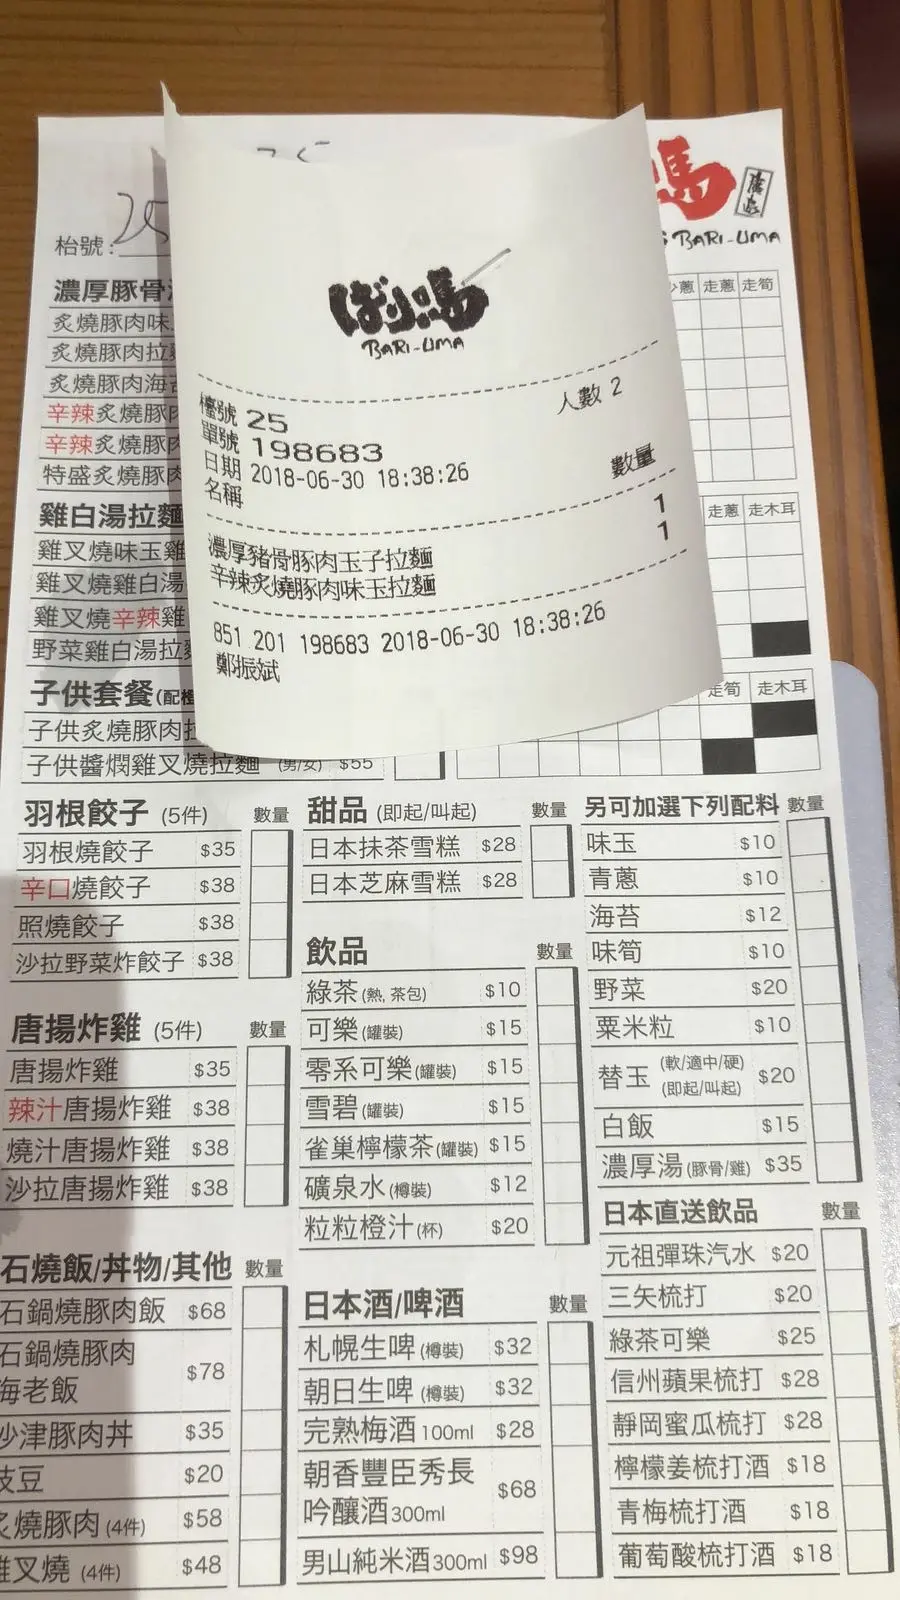 枱號: 25
BARI-UMA
濃厚豚骨
炙燒豚肉味
炙燒豚肉拉
炙燒豚肉海
辛辣炙燒豚
辛辣炙燒豚
特盛炙燒豚
走蔥 走筍
雞白湯拉麵
走蔥 走木耳
雞叉燒味玉雞
雞叉燒雞白湯
雞叉燒辛辣雞
野菜雞白湯拉
子供套餐(配橙
走筍 走木耳
子供炙燒豚肉拉
子供醬燜雞叉燒拉麵 (男/女) $55
ばり馬
BARI-UMA
檯號 25
人數 2
單號 198683
日期 2018-06-30 18:38:26
名稱
數量
濃厚豬骨豚肉玉子拉麵 1
辛辣炙燒豚肉味玉拉麵 1
851 201 198683 2018-06-30 18:38:26
鄭振斌
羽根餃子 (5件) 數量
羽根燒餃子 $35
辛口燒餃子 $38
照燒餃子 $38
沙拉野菜炸餃子 $38
唐揚炸雞 (5件) 數量
唐揚炸雞 $35
辣汁唐揚炸雞 $38
燒汁唐揚炸雞 $38
沙拉唐揚炸雞 $38
石燒飯/丼物/其他 數量
石鍋燒豚肉飯 $68
石鍋燒豚肉
海老飯 $78
沙津豚肉丼 $35
枝豆 $20
炙燒豚肉 (4件) $58
雞叉燒 (4件) $48
甜品 (即起/叫起) 數量
日本抹茶雪糕 $28
日本芝麻雪糕 $28
飲品 數量
綠茶 (熱, 茶包) $10
可樂 (罐裝) $15
零系可樂 (罐裝) $15
雪碧 (罐裝) $15
雀巢檸檬茶 (罐裝) $15
礦泉水 (樽裝) $12
粒粒橙汁 (杯) $20
日本酒/啤酒 數量
札幌生啤 (樽裝) $32
朝日生啤 (樽裝) $32
完熟梅酒 100ml $28
朝香豐臣秀長
吟釀酒 300ml $68
男山純米酒 300ml $98
另可加選下列配料 數量
味玉 $10
青蔥 $10
海苔 $12
味筍 $10
野菜 $20
粟米粒 $10
替玉 (軟/適中/硬) (即起/叫起) $20
白飯 $15
濃厚湯 (豚骨/雞) $35
日本直送飲品 數量
元祖彈珠汽水 $20
三矢梳打 $20
綠茶可樂 $25
信州蘋果梳打 $28
靜岡蜜瓜梳打 $28
檸檬姜梳打酒 $18
青梅梳打酒 $18
葡萄酸梳打酒 $18